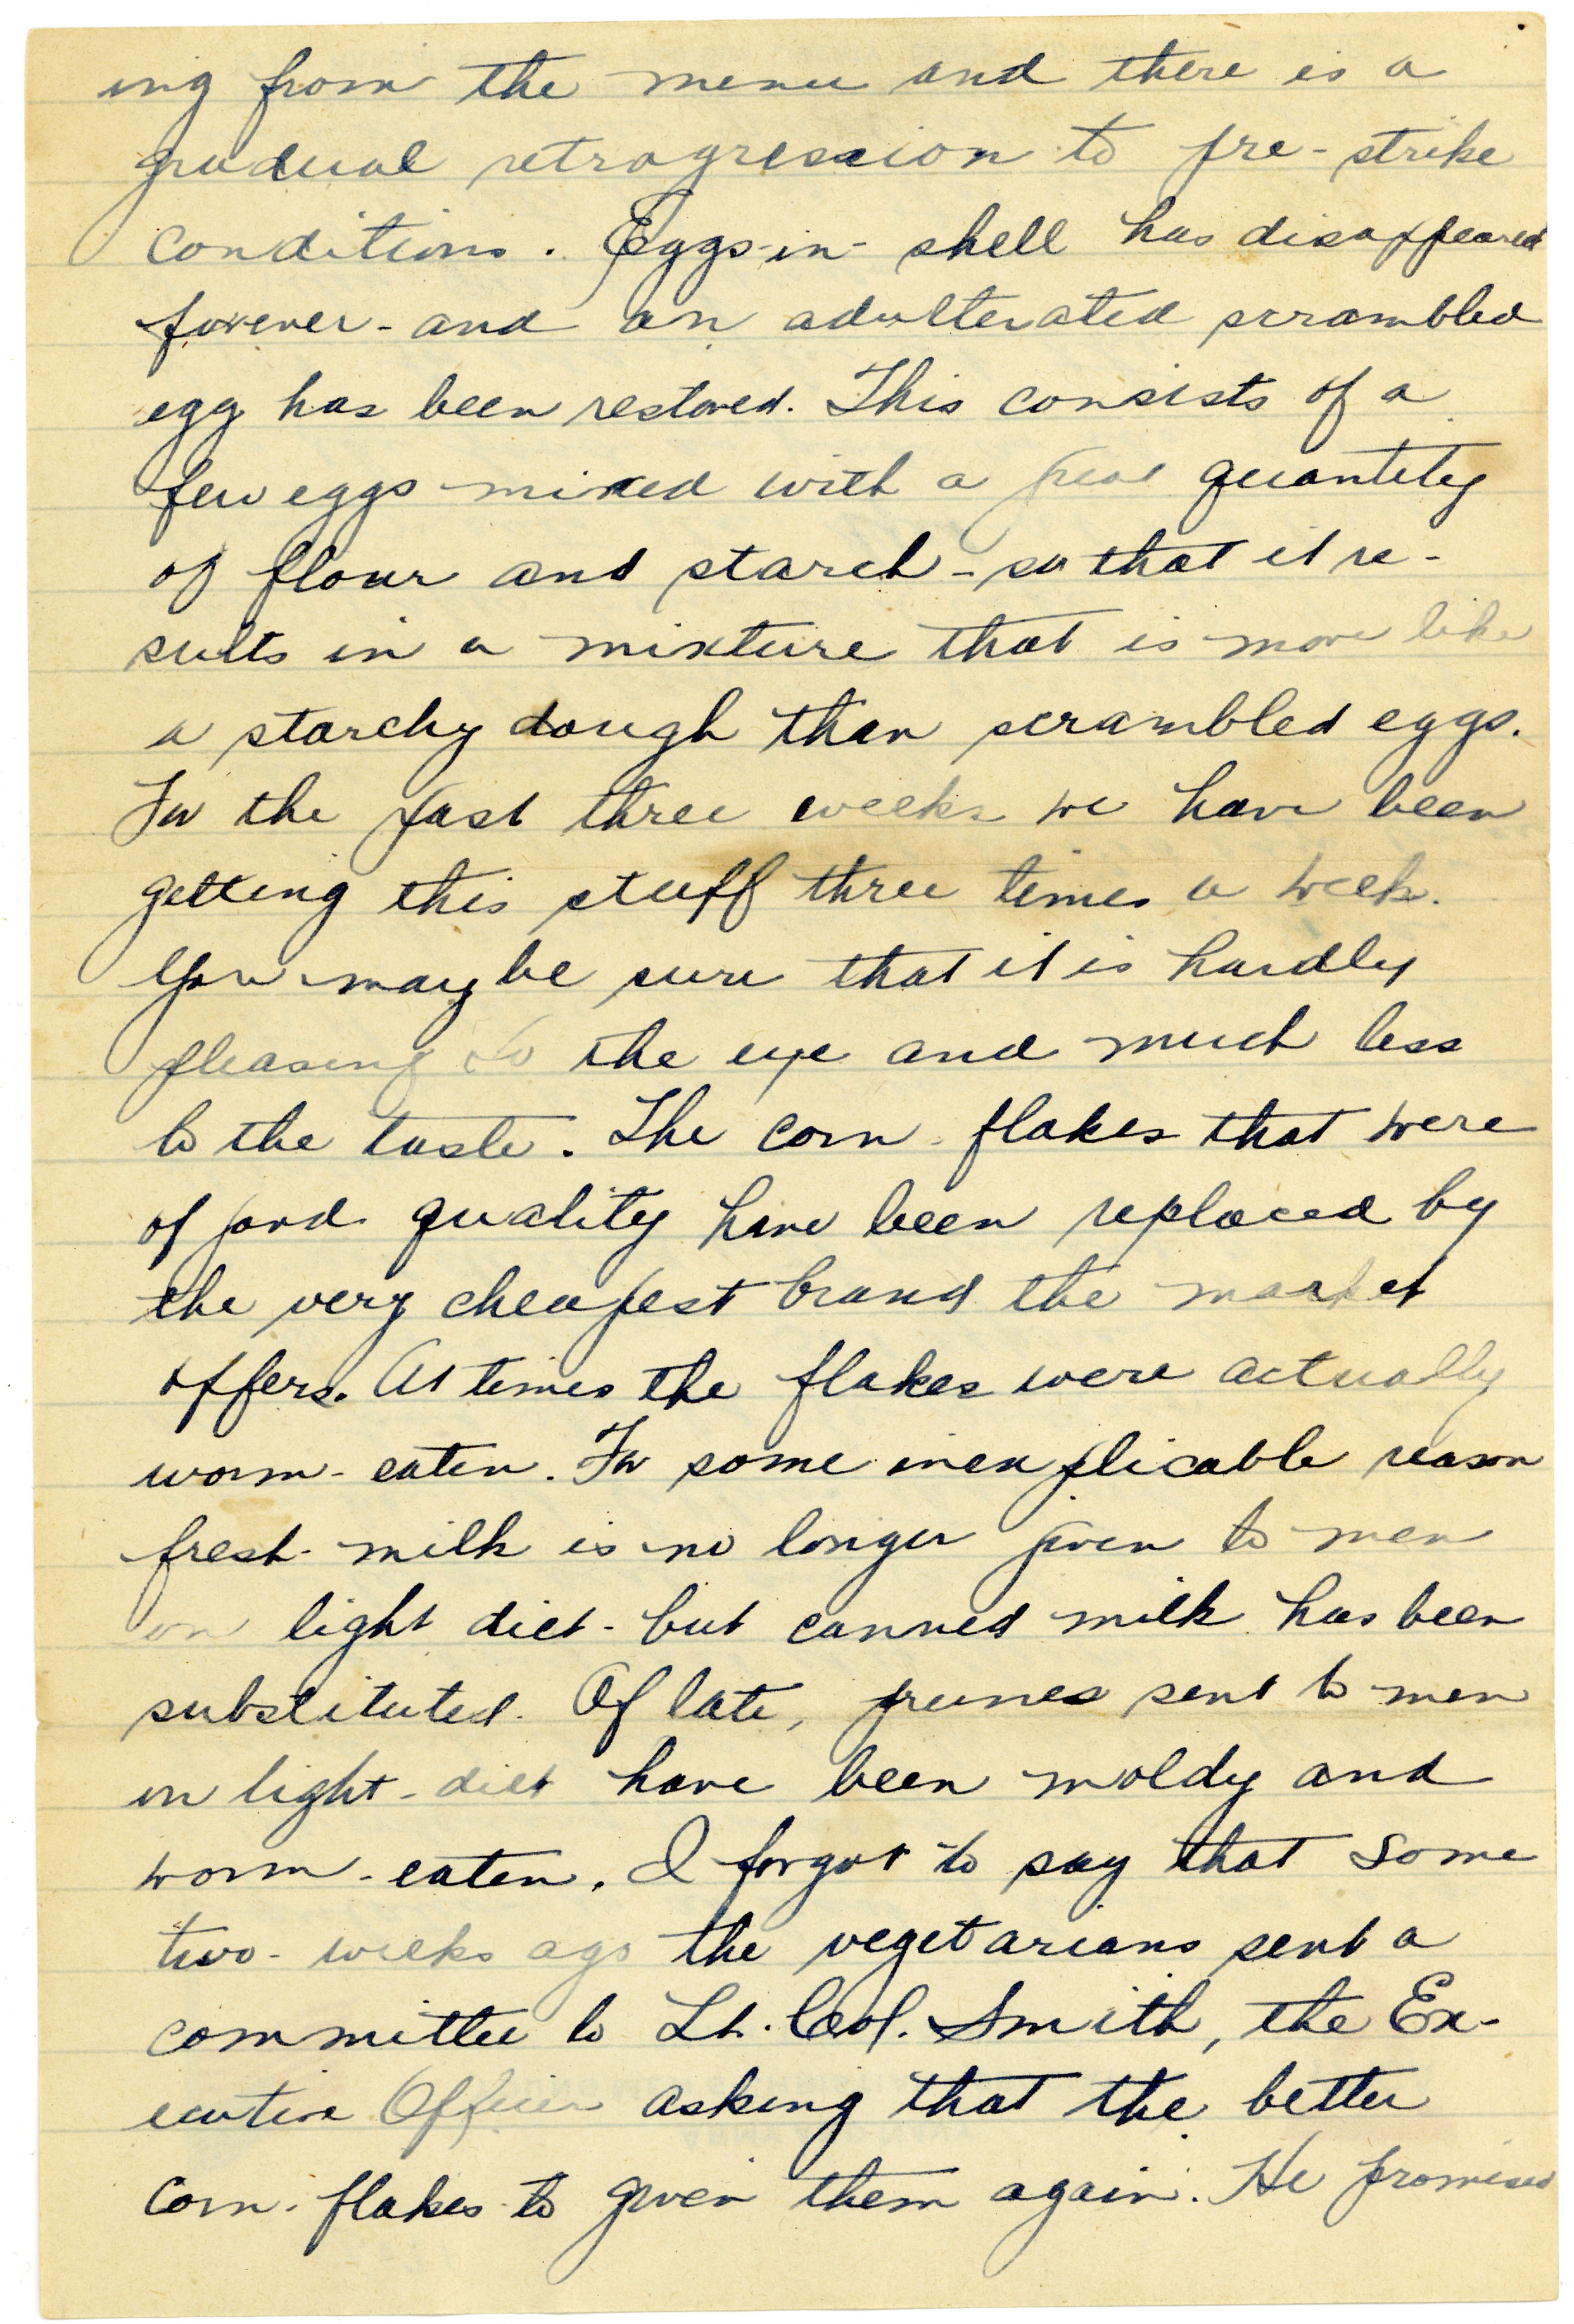 ing from the menu and there is a
gradual retrogression to pre-strike
conditions. Eggs-in-shell has disappeared
forever - and an adulterated scrambled
egg has been restored. This consists of a
few eggs mixed with a great quantity
of flour and starch - so that it re-
sults in a mixture that is more like
a starchy dough than scrambled eggs.
For the past three weeks we have been
getting this stuff three times a week.
You may be sure that it is hardly
pleasing to the eye and much less
to the taste. The corn-flakes that were
of good quality have been replaced by
the very cheapest brand the market
offers. At times the flakes were actually
worm-eaten. For some inexplicable reason
fresh milk is no longer given to men
on light diet - but canned milk has been
substituted. Of late, prunes sent to men
on light-diet have been moldy and
worm-eaten. I forgot to say that some
two-weeks ago the vegetarians sent a
committee to Lt. Col. Smith, the Ex-
ecutive Officer asking that the better
corn-flakes to given them again. He promised